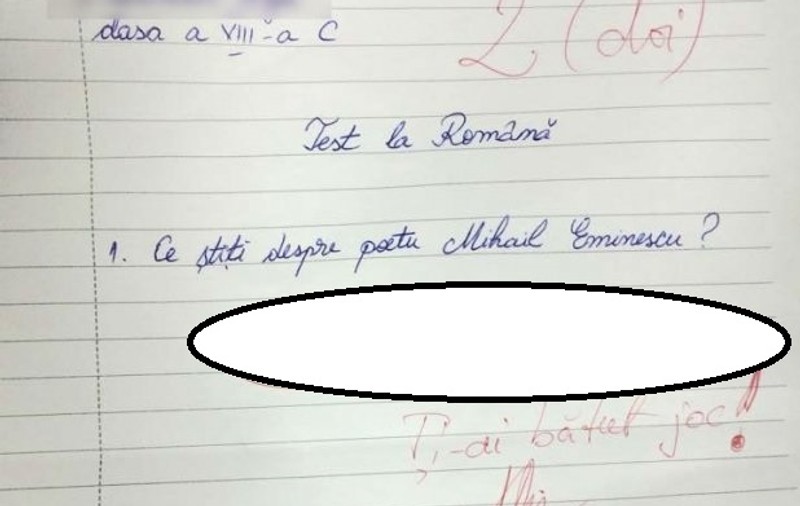 clasa a VIII-a C
2 (doi)
Test la Română
1. Ce știți despre poetu Mihail Eminescu ?
Ți-ai bătut joc!